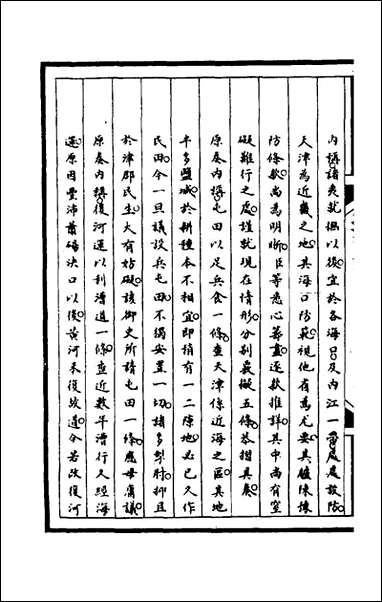 內稱諸夷就撫以後宜於各海口及內江一帶處處設防
天津為近畿之地其海口防範視他省為尤要其臚陳條
防條款尚為明晰臣等悉心籌畫逐款推詳其中尚有窒
礙難行之處謹就現在情形分別裁擬五條恭摺具奏
原奏內稱屯田以足兵食一條查天津係近海之區其地
半多鹽堿於耕種本不相宜即稍有一二隙地必已久作
民田今一旦議設兵屯田不獨安置一切諸多掣肘抑且
於津郡民生大有妨礙該御史所請屯田一條應毋庸議
原奏內稱復河運以利漕道一條查近數年漕行久經海
運原因豐沛蕭碭決口以後黃河未復故道今若改復河